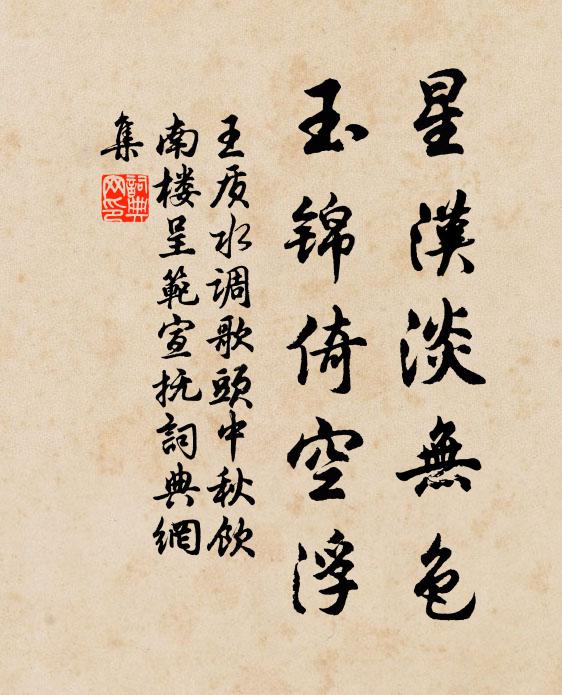 星漢淡無色
玉锦倚空浮
王质水调歌頭中秋饮
南楼呈範宣抚詞典網
集
詞典
网印